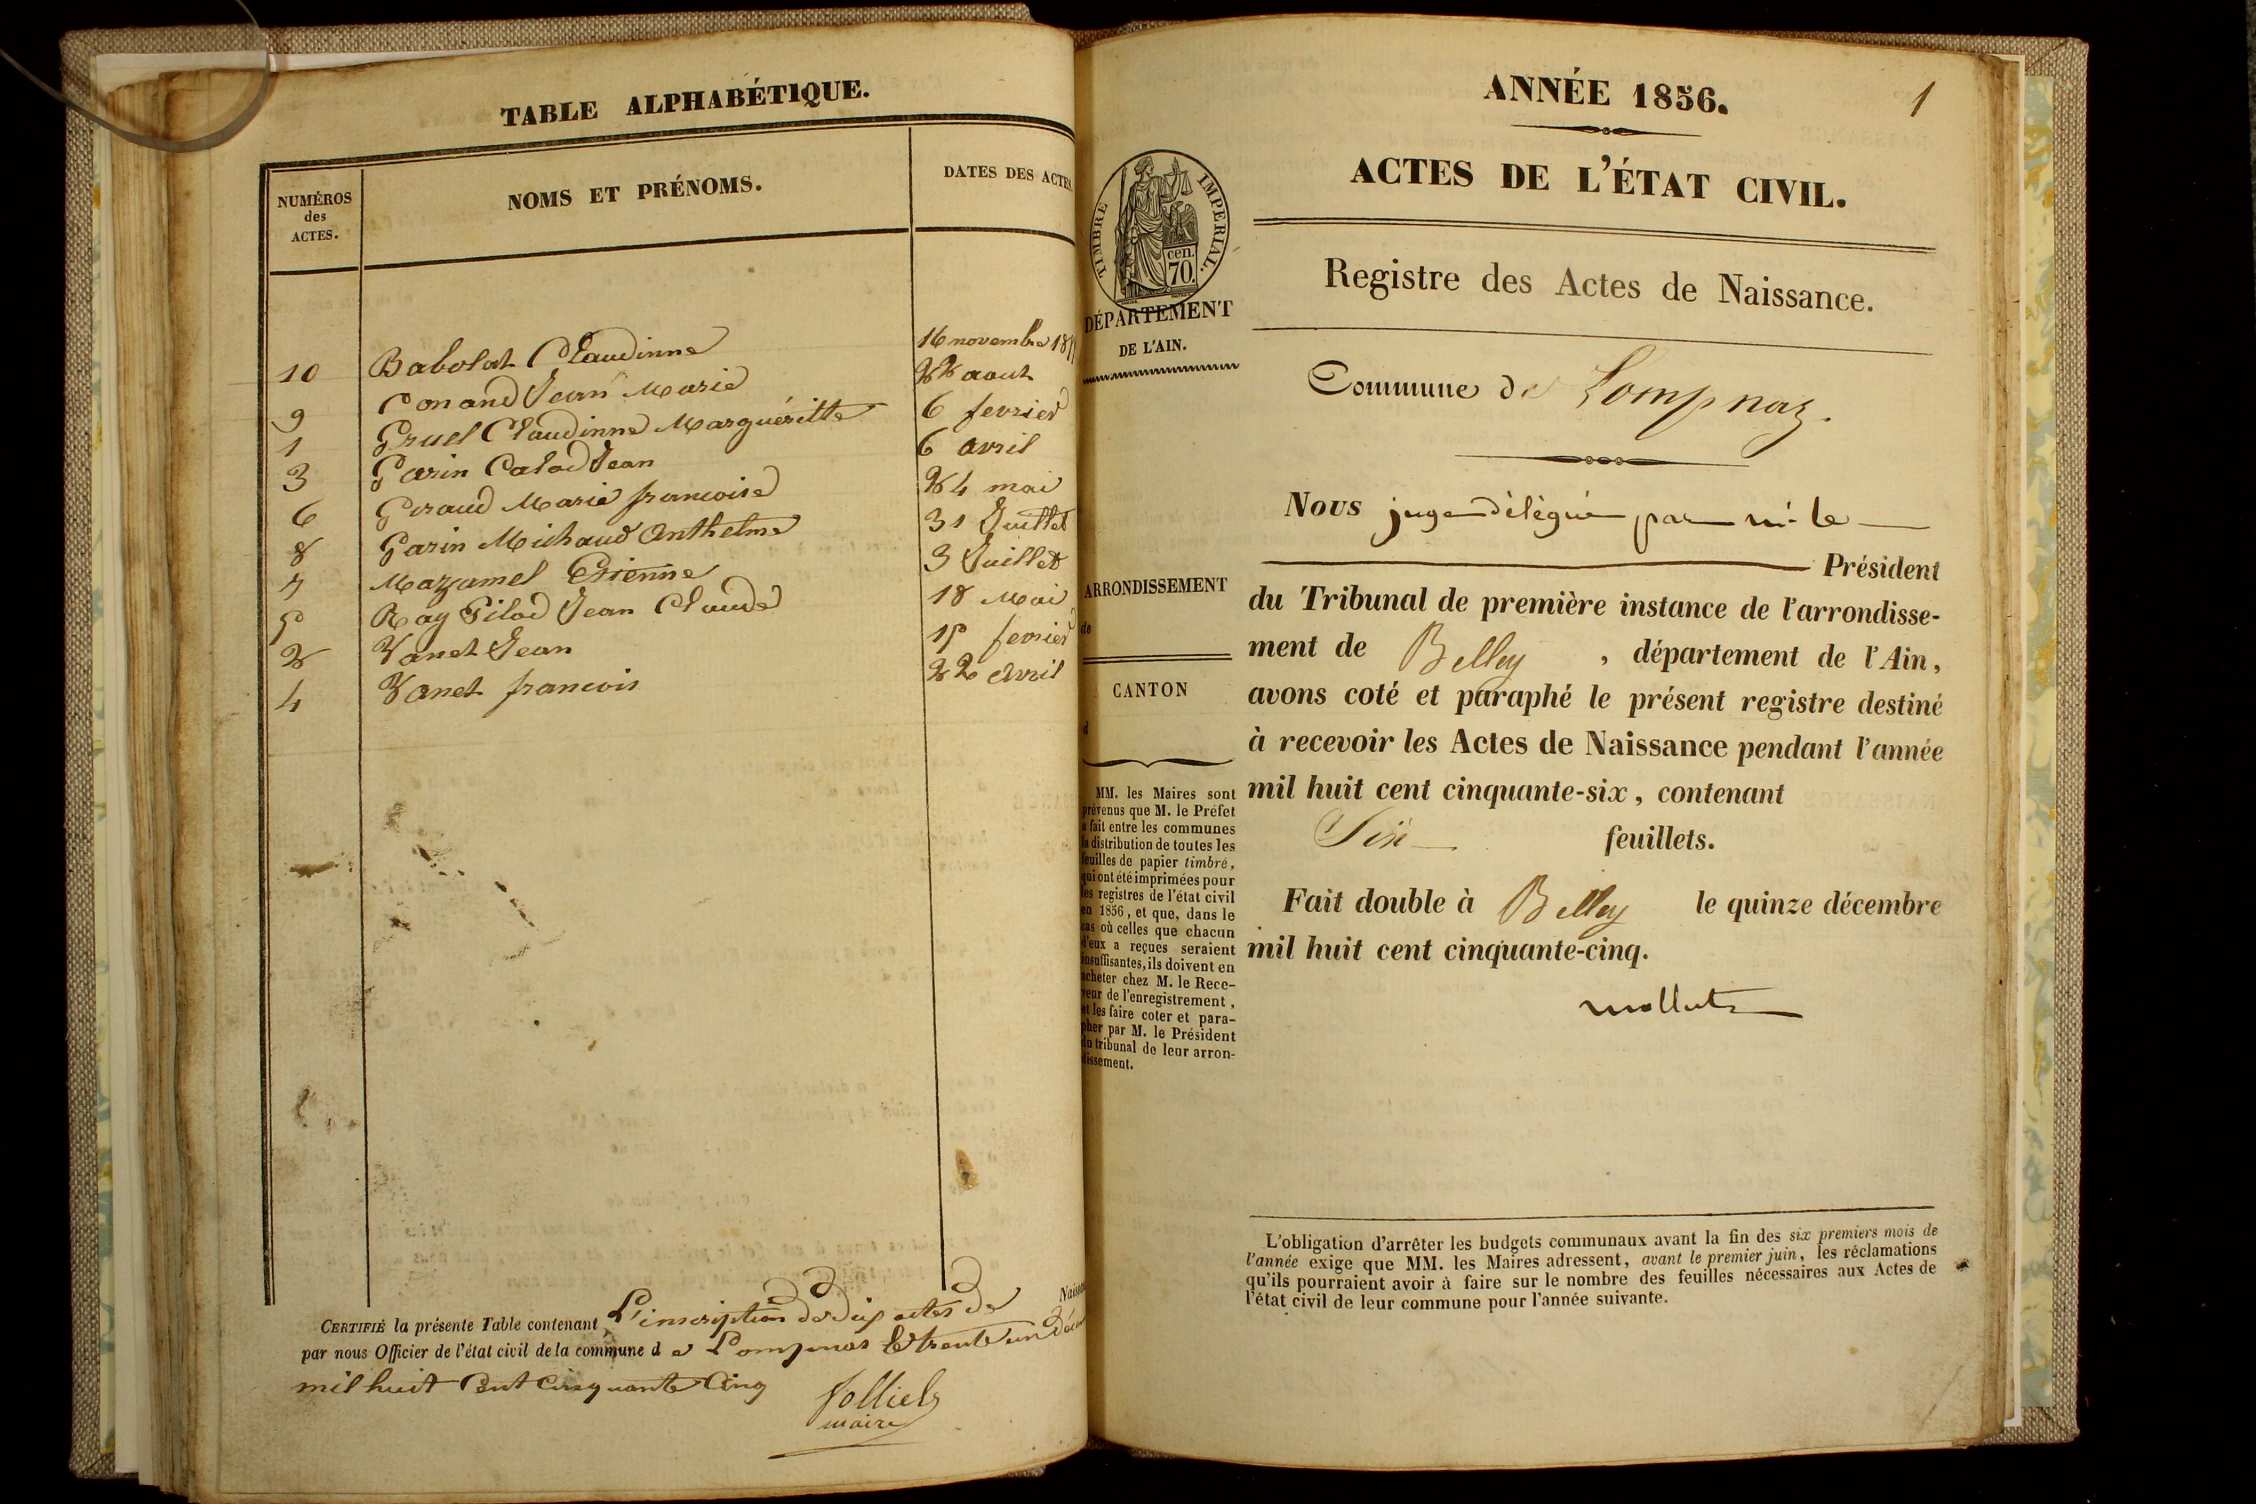 TABLE ALPHABÉTIQUE.
NUMÉROS
des
ACTES.
NOMS ET PRÉNOMS.
DATES DES ACTES.
10 Babolat Claudinne 16 novembre
9 Conand Jean Marie 22 aout
1 Gruel Claudinne Marguéritte 6 fevrier
3 Garin Calod Jean 6 avril
6 Giraud Marie francoise 24 mai
8 Garin Michaud Anthelme 31 Juillet
7 Mazamel Etienne 3 Juillet
5 Ray Pilod Jean Claude 18 Mai
2 Vanet Jean 15 fevrier
4 Vanet francois 22 Avril
CERTIFIÉ la présente Table contenant L'inscription de dix actes de
par nous Officier de l'état civil de la commune de Lompnas le trente un
mil huit Cent Cinquante Cinq
maire
1
ANNÉE 1856.
ACTES DE L'ÉTAT CIVIL.
Registre des Actes de Naissance.
TIMBRE IMPERIAL.
cen.
70.
DÉPARTEMENT
DE L'AIN.
ARRONDISSEMENT
de
CANTON
d
MM. les Maires sont
prévenus que M. le Préfet
a fait entre les communes
la distribution de toutes les
feuilles de papier timbré,
qui ont été imprimées pour
les registres de l'état civil
en 1856, et que, dans le
cas où celles que chacun
d'eux a reçues seraient
insuffisantes, ils doivent en
acheter chez M. le Rece-
veur de l'enregistrement,
et les faire coter et para-
pher par M. le Président
du tribunal de leur arron-
dissement.
Commune de Lompnaz.
Nous juge délégué par m. le
Président
du Tribunal de première instance de l'arrondisse-
ment de Belley, département de l'Ain,
avons coté et paraphé le présent registre destiné
à recevoir les Actes de Naissance pendant l'année
mil huit cent cinquante-six, contenant
Six feuillets.
Fait double à Belley le quinze décembre
mil huit cent cinquante-cinq.
L'obligation d'arrêter les budgets communaux avant la fin des six premiers mois de
l'année exige que MM. les Maires adressent, avant le premier juin, les réclamations
qu'ils pourraient avoir à faire sur le nombre des feuilles nécessaires aux Actes de
l'état civil de leur commune pour l'année suivante.